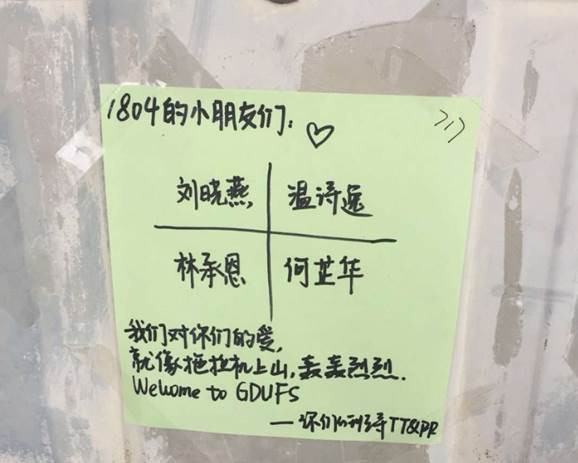 1804的小朋友们:
刘晓燕, 温诗
林承恩 何芷华
我们对你们的爱,
就像拖拉机上山,轰轰烈烈.
Welcome to GDUFS
——你们的 TT&PR